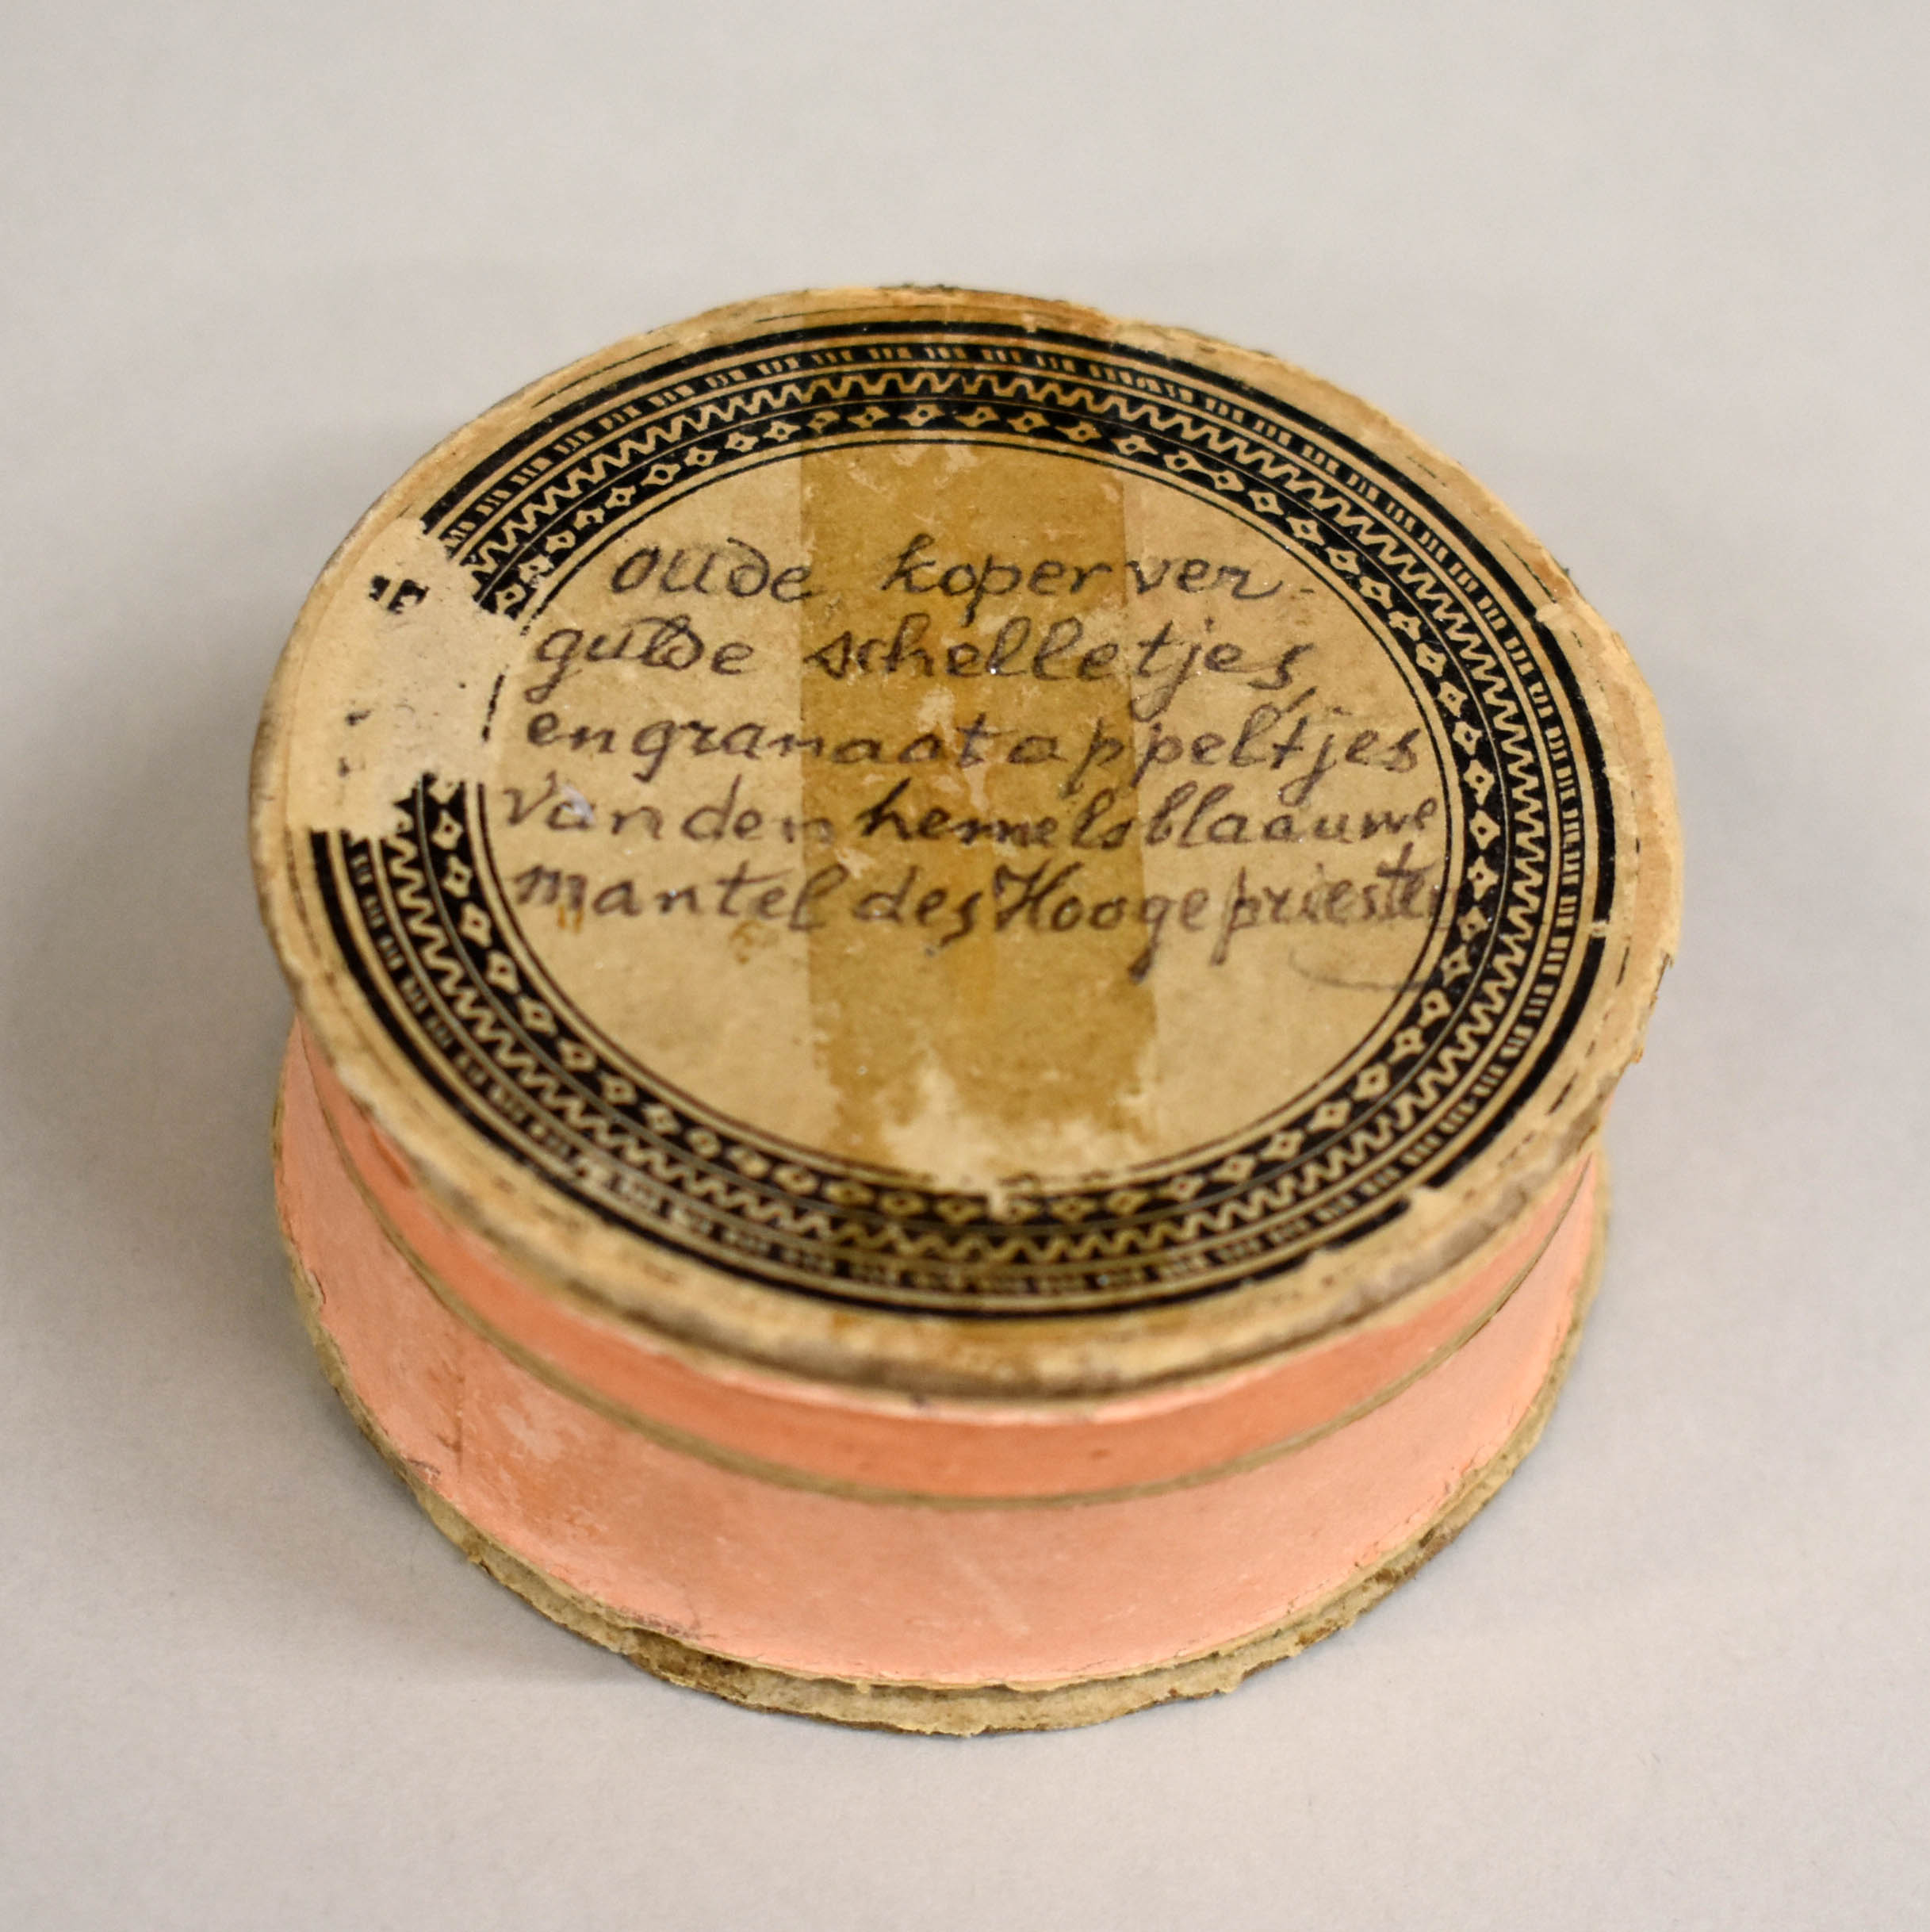 oude koper ver-
gulde schelletjes,
en granaatappeltjes
van den hemelsblaauwe
mantel des Hoogepriesters